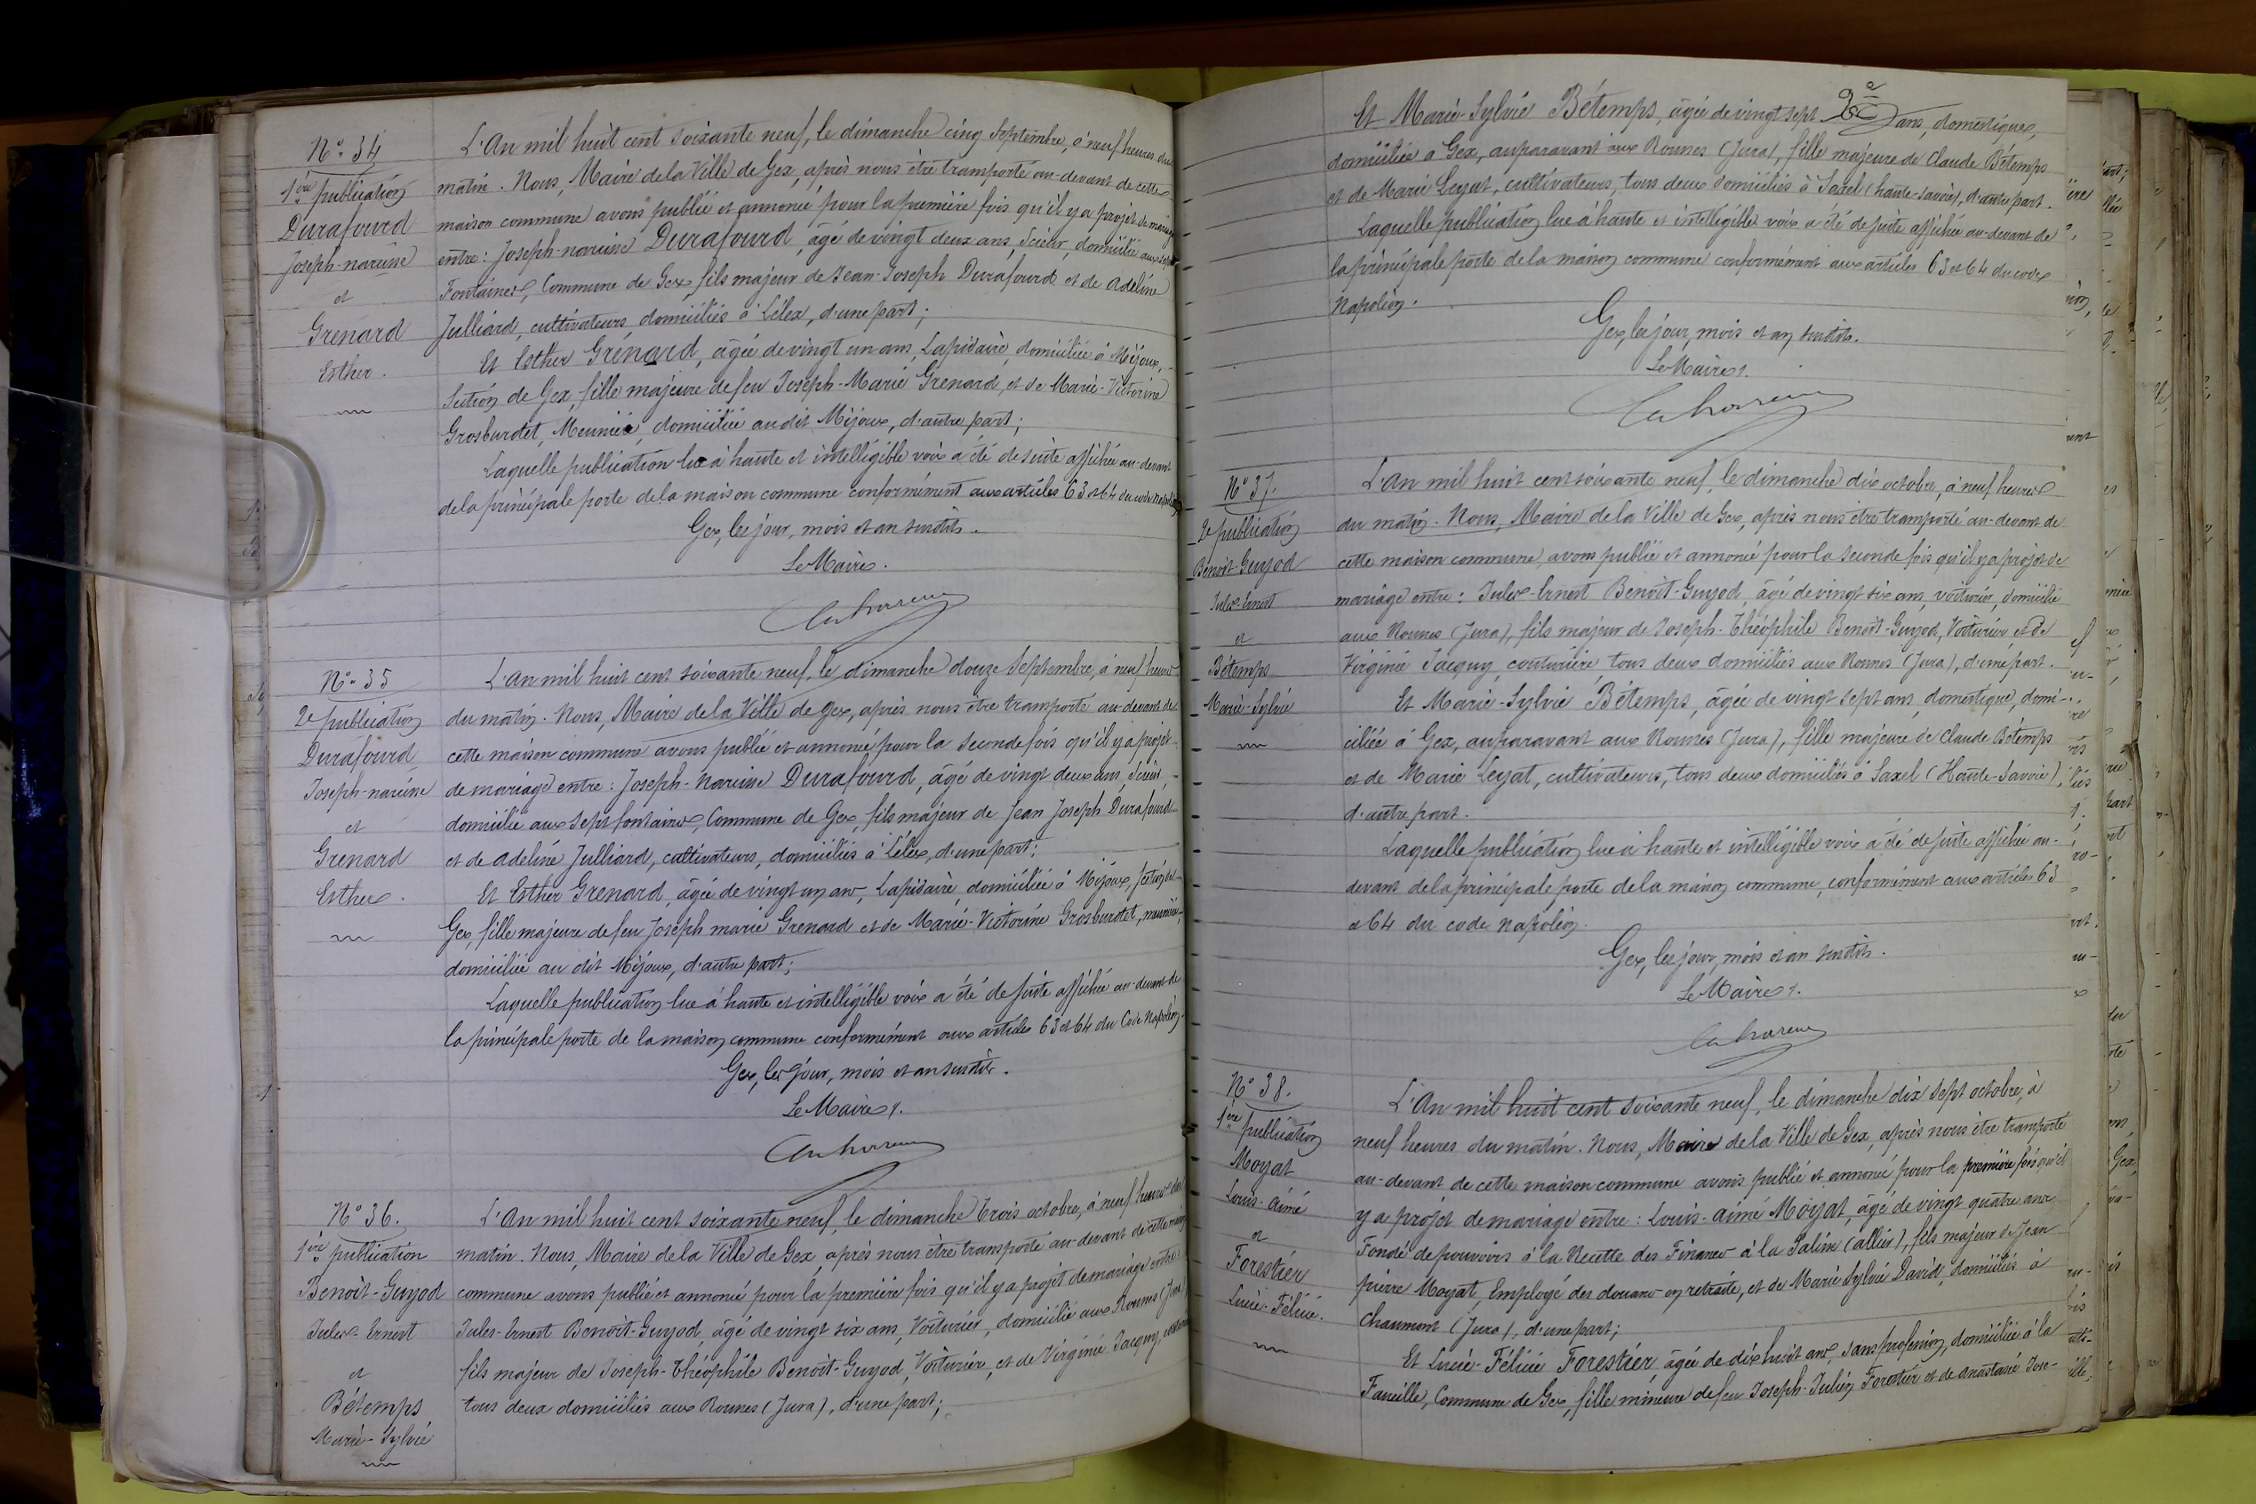 N° 34
1ère publication
Durafourd
Joseph-narcisse
et
Grenard
Esther.
L'An mil huit cent soixante neuf, le dimanche cinq Septembre, à neuf heures du
matin. Nous, Maire de la Ville de Gex, après nous être transporté au-devant de cette
maison commune avons publié et annoncé pour la première fois qu'il y a projet de mariage
entre: Joseph-narcisse Durafourd, âgé de vingt deux ans, Scieur, domicilié aux sept
Fontaines, Commune de Gex, fils majeur de Jean-Joseph Durafourd et de Adéline
Julliard, cultivateurs, domiciliés à Lélex, d'une part;
Et Esther Grenard, âgée de vingt un ans, Lapidaire, domiciliée à Mijoux,
Section de Gex, fille majeure de feu Joseph-Marie Grenard, et de Marie-Victorine
Grosburdet, Meunière, domiciliée au dit Mijoux, d'autre part;
Laquelle publication lue à haute et intelligible voix a été de suite affichée au-devant
de la principale porte de la maison commune conformément aux articles 63 et 64 du code napoléon
Gex, les jour, mois et an susdits.
Le Maire.
N° 35
2e publication
Durafourd
Joseph-narcisse
et
Grenard
Esther.
L'An mil huit cent soixante neuf, le dimanche douze Septembre, à neuf heures
du matin. Nous, Maire de la Ville de Gex, après nous être transporté au-devant de
cette maison commune avons publié et annoncé pour la seconde fois qu'il y a projet
de mariage entre: Joseph-Narcisse Durafourd, âgé de vingt deux ans, Scieur,
domicilié aux Sept fontaines, Commune de Gex, fils majeur de Jean Joseph Durafourd
et de Adeline Julliard, cultivateurs, domiciliés à Lélex, d'une part;
Et Esther Grenard, âgée de vingt un ans, Lapidaire, domiciliée à Mijoux, section de
Gex, fille majeure de feu Joseph marie Grenard et de Marie-Victorine Grosburdet, meunière,
domiciliée au dit Mijoux, d'autre part;
Laquelle publication lue à haute et intelligible voix a été de suite affichée au-devant de
la principale porte de la maison commune conformément aux articles 63 et 64 du Code Napoléon.
Gex, les jour, mois et an susdits.
Le Maire.
N° 36.
1ère publication
Benoit-Guyod
Jules-Ernest
et
Bétemps
Marie-Sylvie
L'An mil huit cent soixante neuf, le dimanche trois octobre, à neuf heures du
matin. Nous, Maire de la Ville de Gex, après nous être transporté au-devant de cette maison
commune avons publié et annoncé pour la première fois qu'il y a projet de mariage entre:
Jules-Ernest Benoit-Guyod, âgé de vingt six ans, Voiturier, domicilié aux Rousses (Jura),
fils majeur de Joseph-Théophile Benoit-Guyod, Voiturier, et de Virginie Jacquy, couturière
tous deux domiciliés aux Rousses (Jura), d'une part;
Et Marie-Sylvie Bétemps, âgée de vingt sept ans, domestique,
domiciliée à Gex, auparavant aux Rousses (Jura), fille majeure de Claude Bétemps
et de Marie Leyat, cultivateurs, tous deux domiciliés à Saxel (haute-savoie), d'autre part.
Laquelle publication lue à haute et intelligible voix a été de suite affichée au-devant de
la principale porte de la maison commune conformément aux articles 63 et 64 du code
Napoléon.
Gex, les jour, mois et an susdits.
Le Maire.
N° 37.
2e publication
Benoit-Guyod
Jules-Ernest
et
Bétemps
Marie-Sylvie
L'An mil huit cent soixante neuf, le dimanche dix octobre, à neuf heures
du matin. Nous, Maire de la Ville de Gex, après nous être transporté au-devant de
cette maison commune, avons publié et annoncé pour la seconde fois qu'il y a projet de
mariage entre: Jules-Ernest Benoit-Guyod, âgé de vingt six ans, voiturier, domicilié
aux Rousses (Jura), fils majeur de Joseph-Théophile Benoit-Guyod, Voiturier et de
Virginie Jacquy, couturière, tous deux domiciliés aux Rousses (Jura), d'une part.
Et Marie-Sylvie Bétemps, âgée de vingt sept ans, domestique, domi-
ciliée à Gex, auparavant aux Rousses (Jura), fille majeure de Claude Bétemps
et de Marie Leyat, cultivateurs, tous deux domiciliés à Saxel (Haute-Savoie),
d'autre part.
Laquelle publication lue à haute et intelligible voix a été de suite affichée au-
devant de la principale porte de la maison commune, conformément aux articles 63
et 64 du code napoléon.
Gex, les jour, mois et an susdits.
Le Maire.
N° 38.
1ère publication
Moyat
Louis-Aimé
et
Forestier
Lucie-Félicie.
L'An mil huit cent soixante neuf, le dimanche dix sept octobre, à
neuf heures du matin. Nous, Maire de la Ville de Gex, après nous être transporté
au-devant de cette maison commune avons publié et annoncé pour la première fois qu'il
y a projet de mariage entre: Louis-Aimé Moyat, âgé de vingt quatre ans
Fondé de pouvoirs à la Recette des Finances à la Palisse (allier), fils majeur de Jean
pierre Moyat, Employé des douanes en retraite, et de Marie Sylvie David, domiciliés à
Chaumont (Jura), d'une part;
Et Lucie-Félicie Forestier, âgée de dix huit ans, sans profession, domiciliée à la
Faucille, Commune de Gex, fille mineure de feu Joseph-Julien Forestier et de Anastasie Jose-